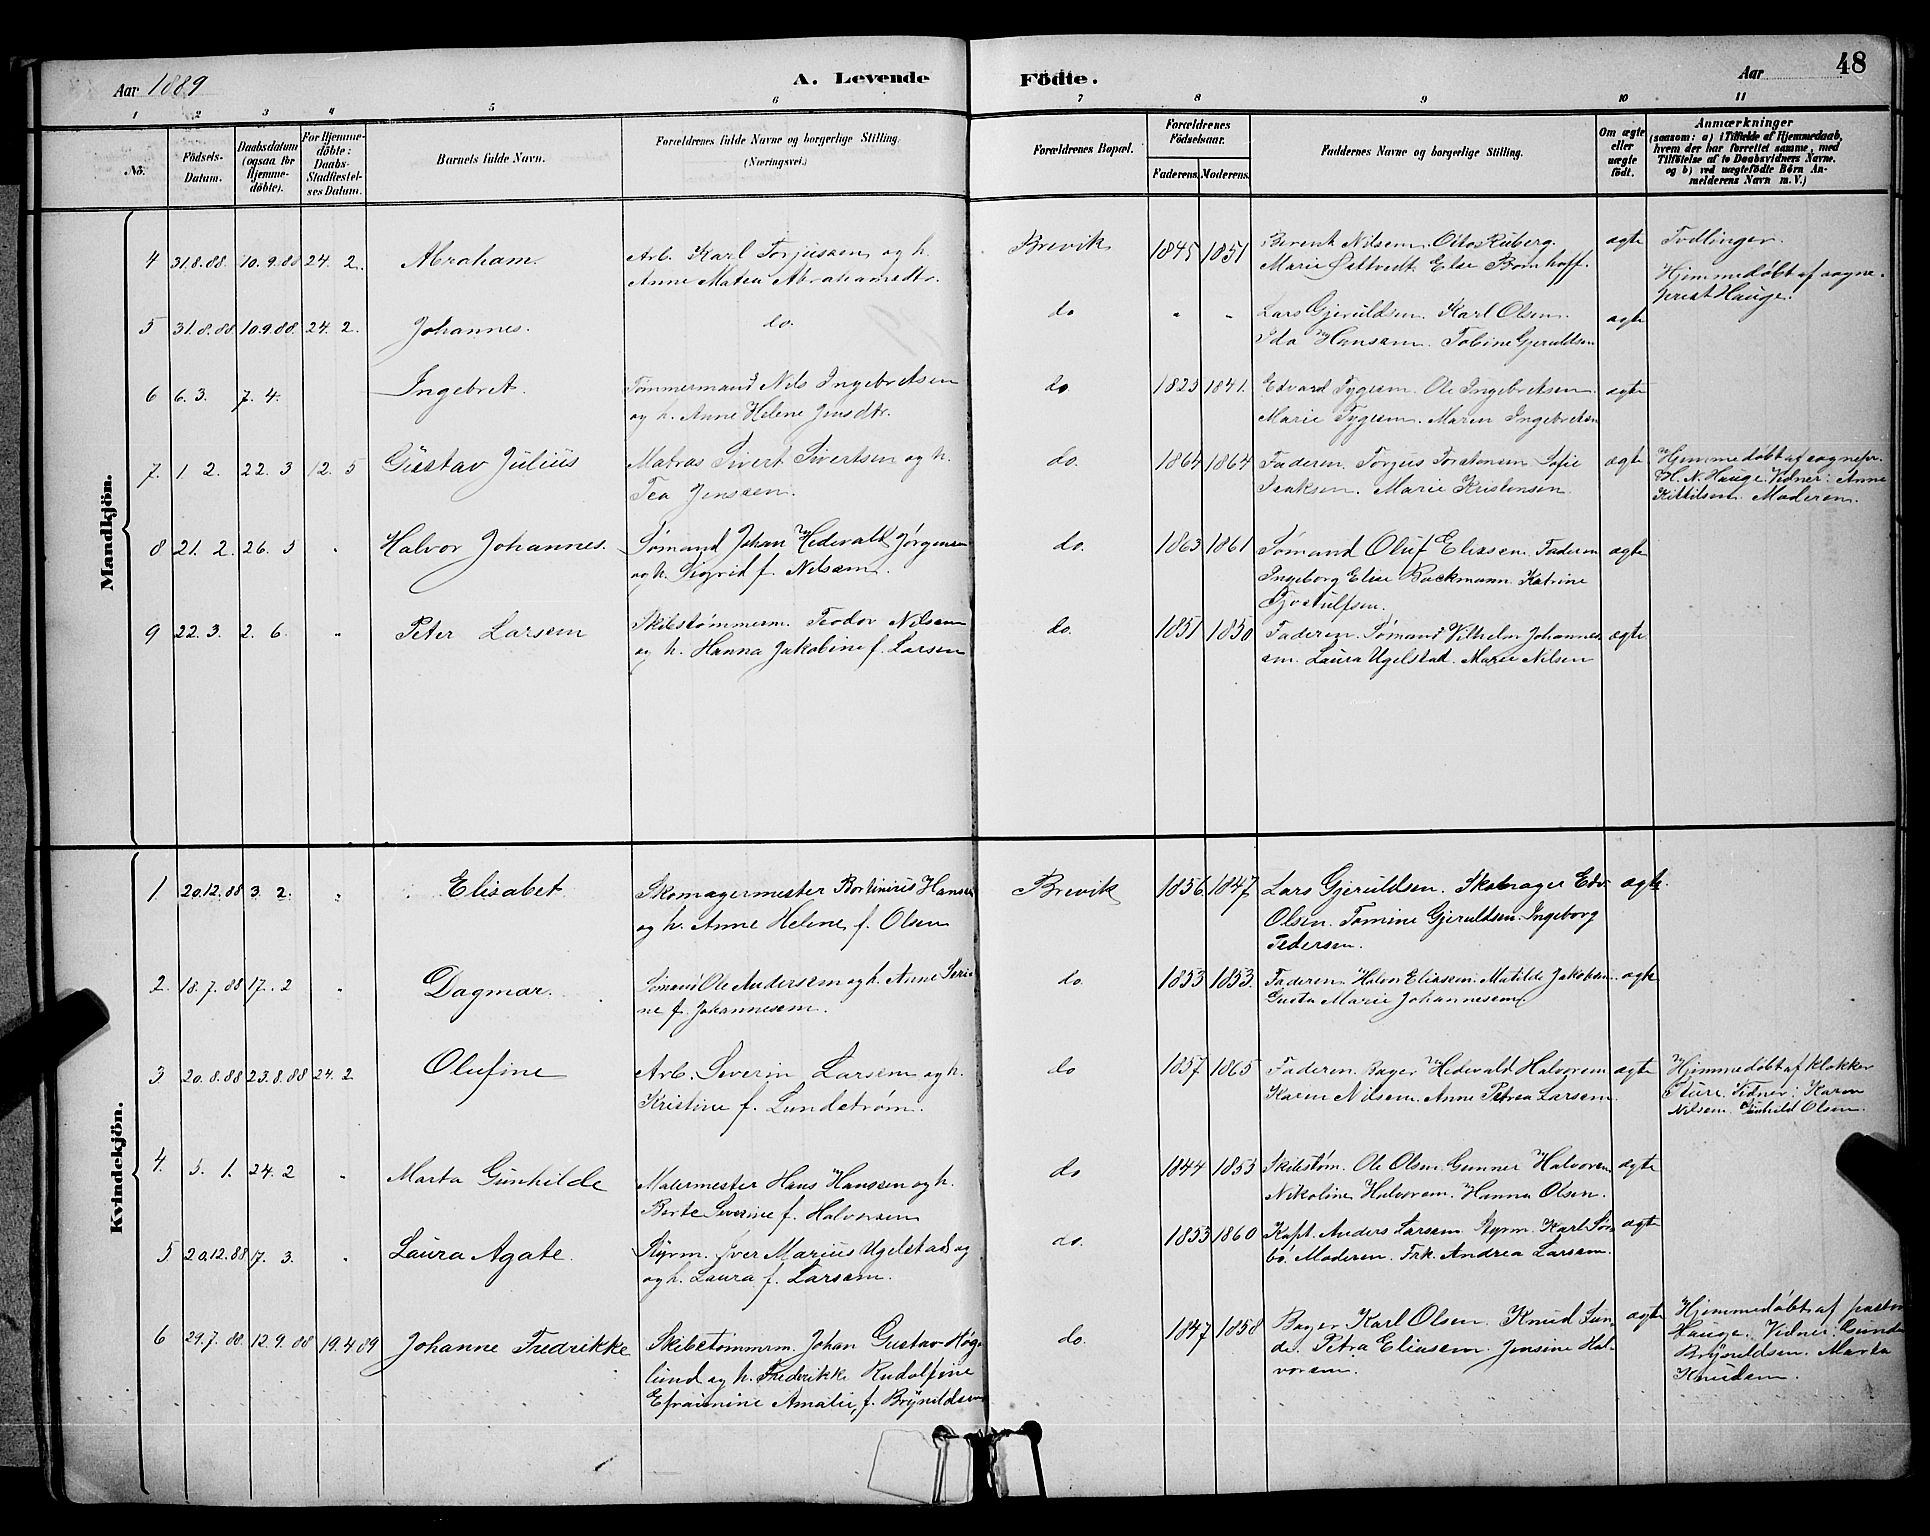 Aar 1889
A. Levende
Födte.
Aar
48
1 2 3 4 5 6 7 8 9 10 11
No.
Födsels-
Datum.
Daabsdatum
(ogsaa for
Hjemme-
döbte).
For Hjemme-
döbte:
Daabs-
Stadfæstel-
ses Datum.
Barnets fulde Navn.
Forældrenes fulde Navne og borgerlige Stilling.
(Næringsvei.)
Forældrenes Bopæl.
Forældrenes
Födselsaar.
Faderens. Moderens.
Faddernes Navne og borgerlige Stilling.
Om ægte
eller
uægte
födt.
Anmærkninger
(saasom: a) i Tilfælde af Hjemmedaab,
hvem der har forrettet samme, med
Tilföielse af to Daabsvidners Navne.
og b) ved uægtefödte Börn An-
melderens Navn m. V.)
Mandkjön.
4 31.8.88. 10.9.88 24. 2. Abraham. Arb. Karl Torjusen og h.
Anne Matea Abrahamsdtr.
Brevik 1845 1851 Berent Nilsen. Otto Ruberg.
Marie Saltvedt. Else Bomhoff.
ægte Tvillinger.
Hjemmedøbt af sogne-
prest Hauge.
5 31.8.88 10.9.88. 24. 2. Johannes. do.
do " " Lars Gjeruldsen. Karl Olsen.
Ida Hansen. Tobine Gjeruldsen
ægte
6 6. 3. 7. 4. Ingebret. Tømmermand Nils Ingebretsen
og h. Anne Helene Jensdtr.
do 1823 1841. Edvard Tygesen. Ole Ingebretsen.
Marie Tygesen. Maren Ingebretsen
ægte
7. 1. 2. 22. 3 12. 5 Gustav Julius Matros Sivert Sivertsen og h.
Tea Jensen.
do. 1864 1864 Faderen. Torjus Torstensen. Sofie
Isaksen. Marie Kristensen
ægte Hjemmedøbt af sognepr.
H. N. Hauge. Vidner: Anne
Kittilsen. Moderen.
8 21. 2. 26. 5 " Halvor Johannes. Sømand Johan Hedevald Jørgensen
og h. Sigrid f. Nilsen.
do. 1863 1861 Sømand Oluf Eliesen. Faderen
Ingeborg Elise Backmann. Katrine
Tjostulfsen.
ægte
9 22. 3. 2. 6. " Peter Larsen Skibstømmerm. Teodor Nilsen
og h. Hanna Jakobine f. Larsen
do. 1851 1850 Faderen. Sømand Vilhelm Johannes-
sen. Laura Ugelstad. Marie Nilsen
ægte
Kvindekjön.
1. 20.12.88 3. 2. " Elisabet Skomagermester Bortinius Hansen
og h. Anne Helene f. Olsen
Brevik 1856. 1847 Lars Gjeruldsen. Skomager Edv.
Olsen. Tomine Gjeruldsen. Ingeborg
Pedersen.
ægte.
2. 18.7.88 17. 2 " Dagmar. Sømand Ole Andersen og h. Anne Seri-
ne f. Johannesen.
do. 1853 1853. Faderen. Halvor Eliasen. Matilde Jakobsen.
Gusta Marie Johannesen
ægte
3 20.8.88 23.8.88 24. 2 Olufine Arb. Severin Larsen og h.
Kristine f. Lundstrøm.
do 1857 1865 Faderen. Bager Hedevald Halvorsen
Karen Nilsen. Anne Petrea Larsen
ægte Hjemmedøbt af klokker
Sture. Vidner: Karen
Nilsen. Gunhild Olsen.
4. 5. 1. 24. 2 " Marta Gunhilde Malermester Hans Hanssen og h.
Berte Severine f. Halvorsen
do 1844 1853 Skibstøm. Ole Olsen. Gunner Halvorsen
Nikoline Halvorsen. Hanna Olsen.
ægte
5 20.12.88 17. 3. " Laura Agate. Styrm. Iver Marius Ugelstad og
og h. Laura f. Larsen.
do. 1853 1860 Kapt. Anders Larsen. Styrm. Karl Søn-
bø. Moderen. Frk. Andrea Larsen.
ægte
6 29.7.88. 12.9.88 19.4.89 Johanne Fredrikke Skibstømmrm. Johan Gustav Høg-
lund og h. Fredrikke Rudolfine
Efraimine Amalie, f. Brynildsen
do. 1847 1858 Bager Karl Olsen. Knud Sun-
de. Petra Eliasen. Jensine Hal-
vorsen.
ægte Hjemmedøbt af pastor
Hauge. Vidner: Gunda
Brynildsen. Marta
Knudsen.